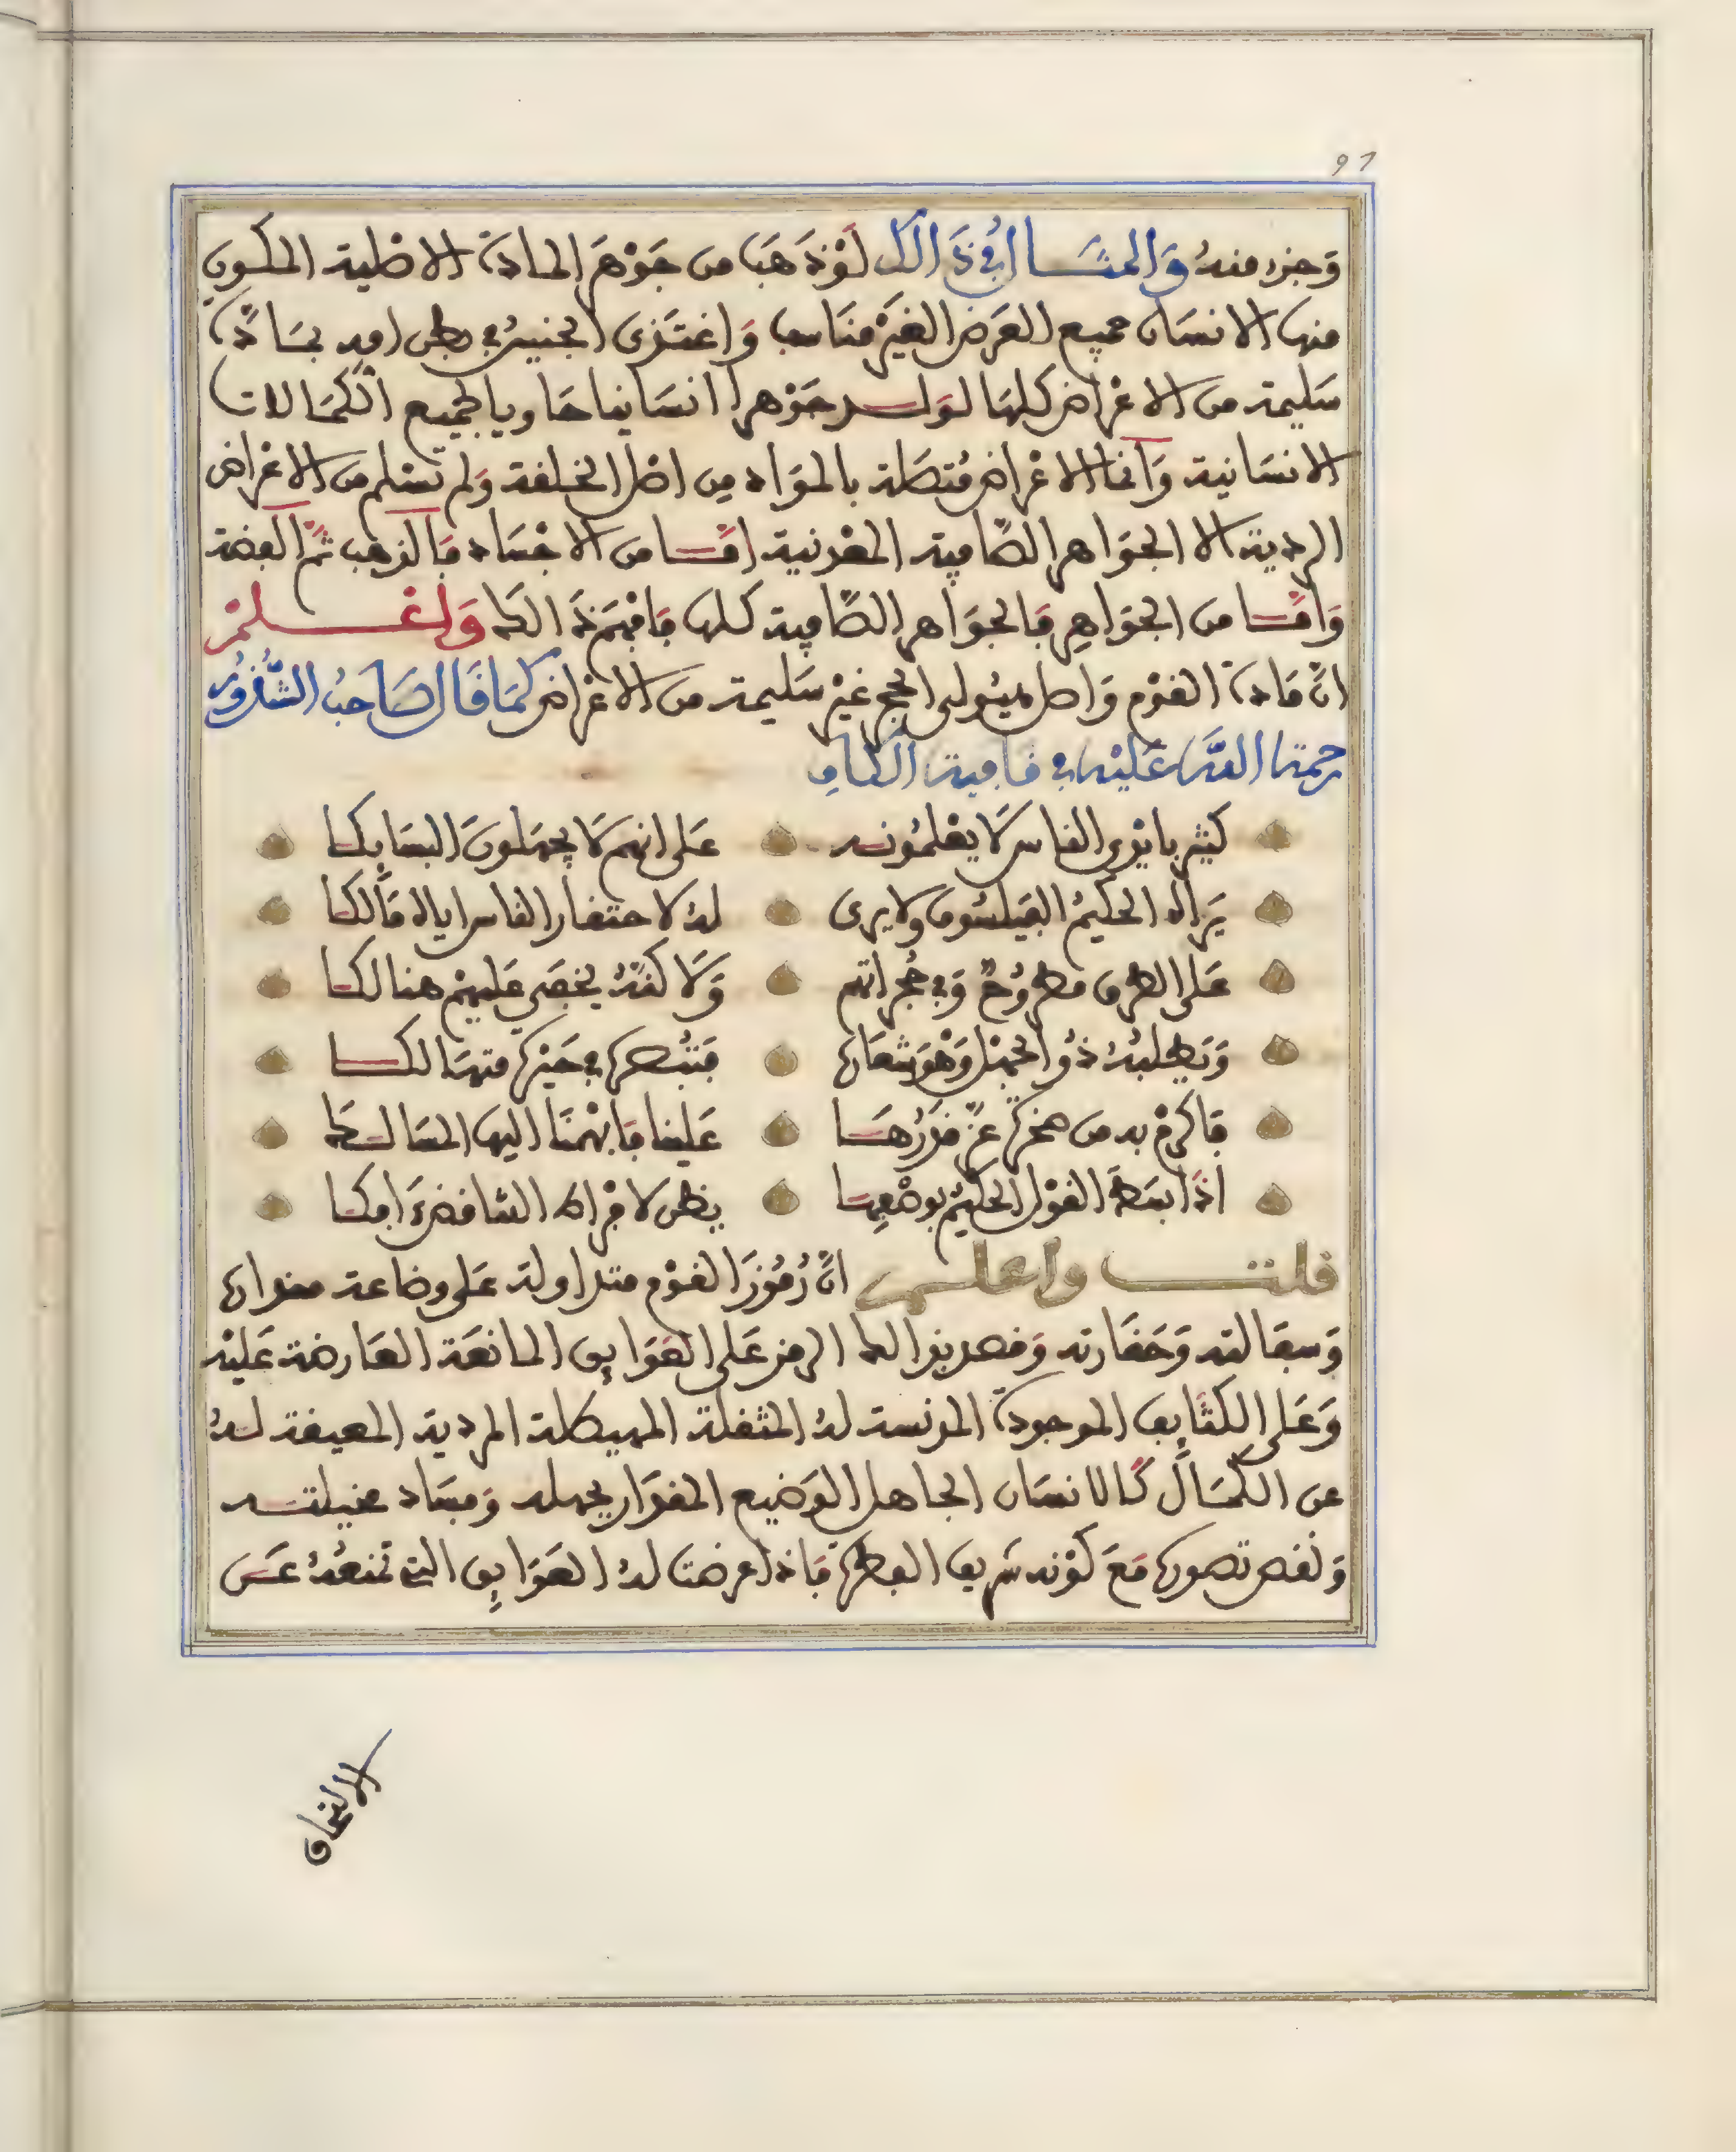 97
وَجزء منهُ وَالمثَـــال في ذَالك لَوْ ذَهَبَ من جَوْهَر المادة الاصْلية المكون
منها الانسَان جميع العَرَض الغيْر مناسب وَاغتَذى الجنين في بطن امه بمَادّة
سَليمة من الاعْراض كلهَا لَولــد جَوْهرا انسَانيا حَاويا لجَميع الكَمَالات
الانسَانية وَانما الاعْراض مُتصَلة بالموَاد مِن اصْل الخلقة وَلم تسْلم من الاعْراض
الردية الا الجوَاهر الصَّافية المعْدنية امَّــا من الاجْسَاد فَالذهب ثمّ الفضة
وَامَّــا من الجوَاهِر فَالجوَاهر الصَّافية كلها فَافهَم ذَالك وَاعْـــلمْ
انّ مَادة القوْم وَاصل هيُولى الحجر غيْر سَليمة من الاعْراض كمَا قَال صَاحبُ الشُّذُور
رحمة اللَّه عَليْه في قافية الكاف
كثير بايْدي الناس لَا يعْلمُونه عَلى انهم لَا يجهَلونَ السَّبَابِكـا
يَراه الحكيمُ الفيَلسُوف ولا يرى لهُ لاحتقار الناس اياه مَالكا
عَلى الطرق مطرُوحٌ وَفي حُجراتهم وَلَاكنّهُ يخفى عَليهمْ هنالكـا
وَيطلبهُ ذُو الجهْل وَهْوَ شعَاره فتبْصره في حَيْرة متهَالكـــا
فَاكرمْ به من صخرة عزّ قدْرُهَـــا عَلينا فَابْهمنَا اليها المسَالـك
اذَا بسَط القوْل الحكيمُ بوصْفِهـا يظن لافْراط التناقض افكـا
قلتـــ واعلـــم انّ رُمُوزَ القوْم متداولة عَلى وضاعة مقداره
وَسفالته وَحَقارته وَقصدوا بذالك الرمز عَلى العَوَايق المانعَة العَارضة عَليْه
وَعَلى الكثَايف الموجودة المدنسة لهُ المثقلة المهيكلة المردية المعيقة لـهُ
عن الكمَال كَالانسَان الجاهل الوَضيع المقدار بجهله وَفسَاد مخيلتـه
وَنقص تصوره مَعَ كوْنه شريف الفطرة فَاذا عرضت لهُ العَوَايق التي تمنعُهُ عَـن
الاتيان